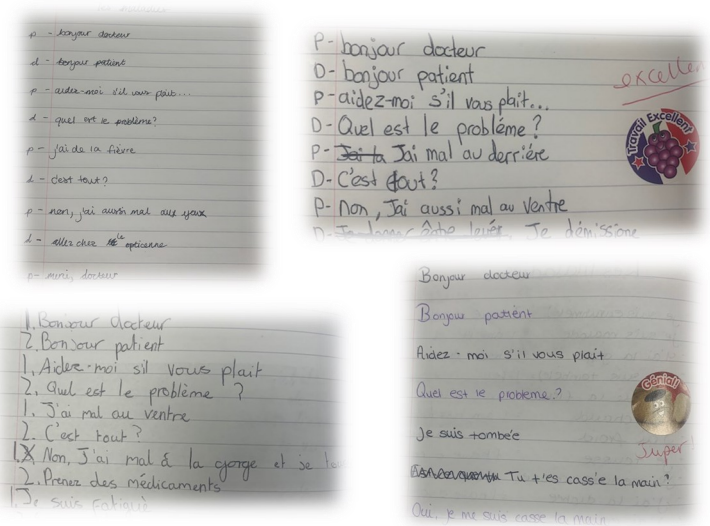 p - bonjour docteur
d - bonjour patient
p - aidez-moi s'il vous plait...
d - quel est le problème?
p - j'ai de la fièvre
d - c'est tout?
p - non, j'ai aussi mal aux yeux
d - allez chez le opticenne
p - merci, docteur
P- bonjour docteur
D- bonjour patient
P- aidez-moi s'il vous plait...
D- Quel est le probléme?
P- Jai mal au derriére
D- C'est tout?
P- non, Jai aussi mal au ventre
D- Je démissione
excellen
Travail Excellent
1. Bonjour docteur
2. Bonjour patient
1. Aidez-moi s'il vous plait
2. Quel est le problème ?
1. J'ai mal au ventre
2. C'est tout?
1. Non, J'ai mal à la gorge et je
2. Prenez des médicaments
1. Je suis fatigué
Bonjour docteur
Bonjour patient
Aidez-moi s'il vous plait
Quel est le probleme?
Je suis tombée
Tu t'es cassée la main?
Oui, je me suis casse la main
Génial!
Super!